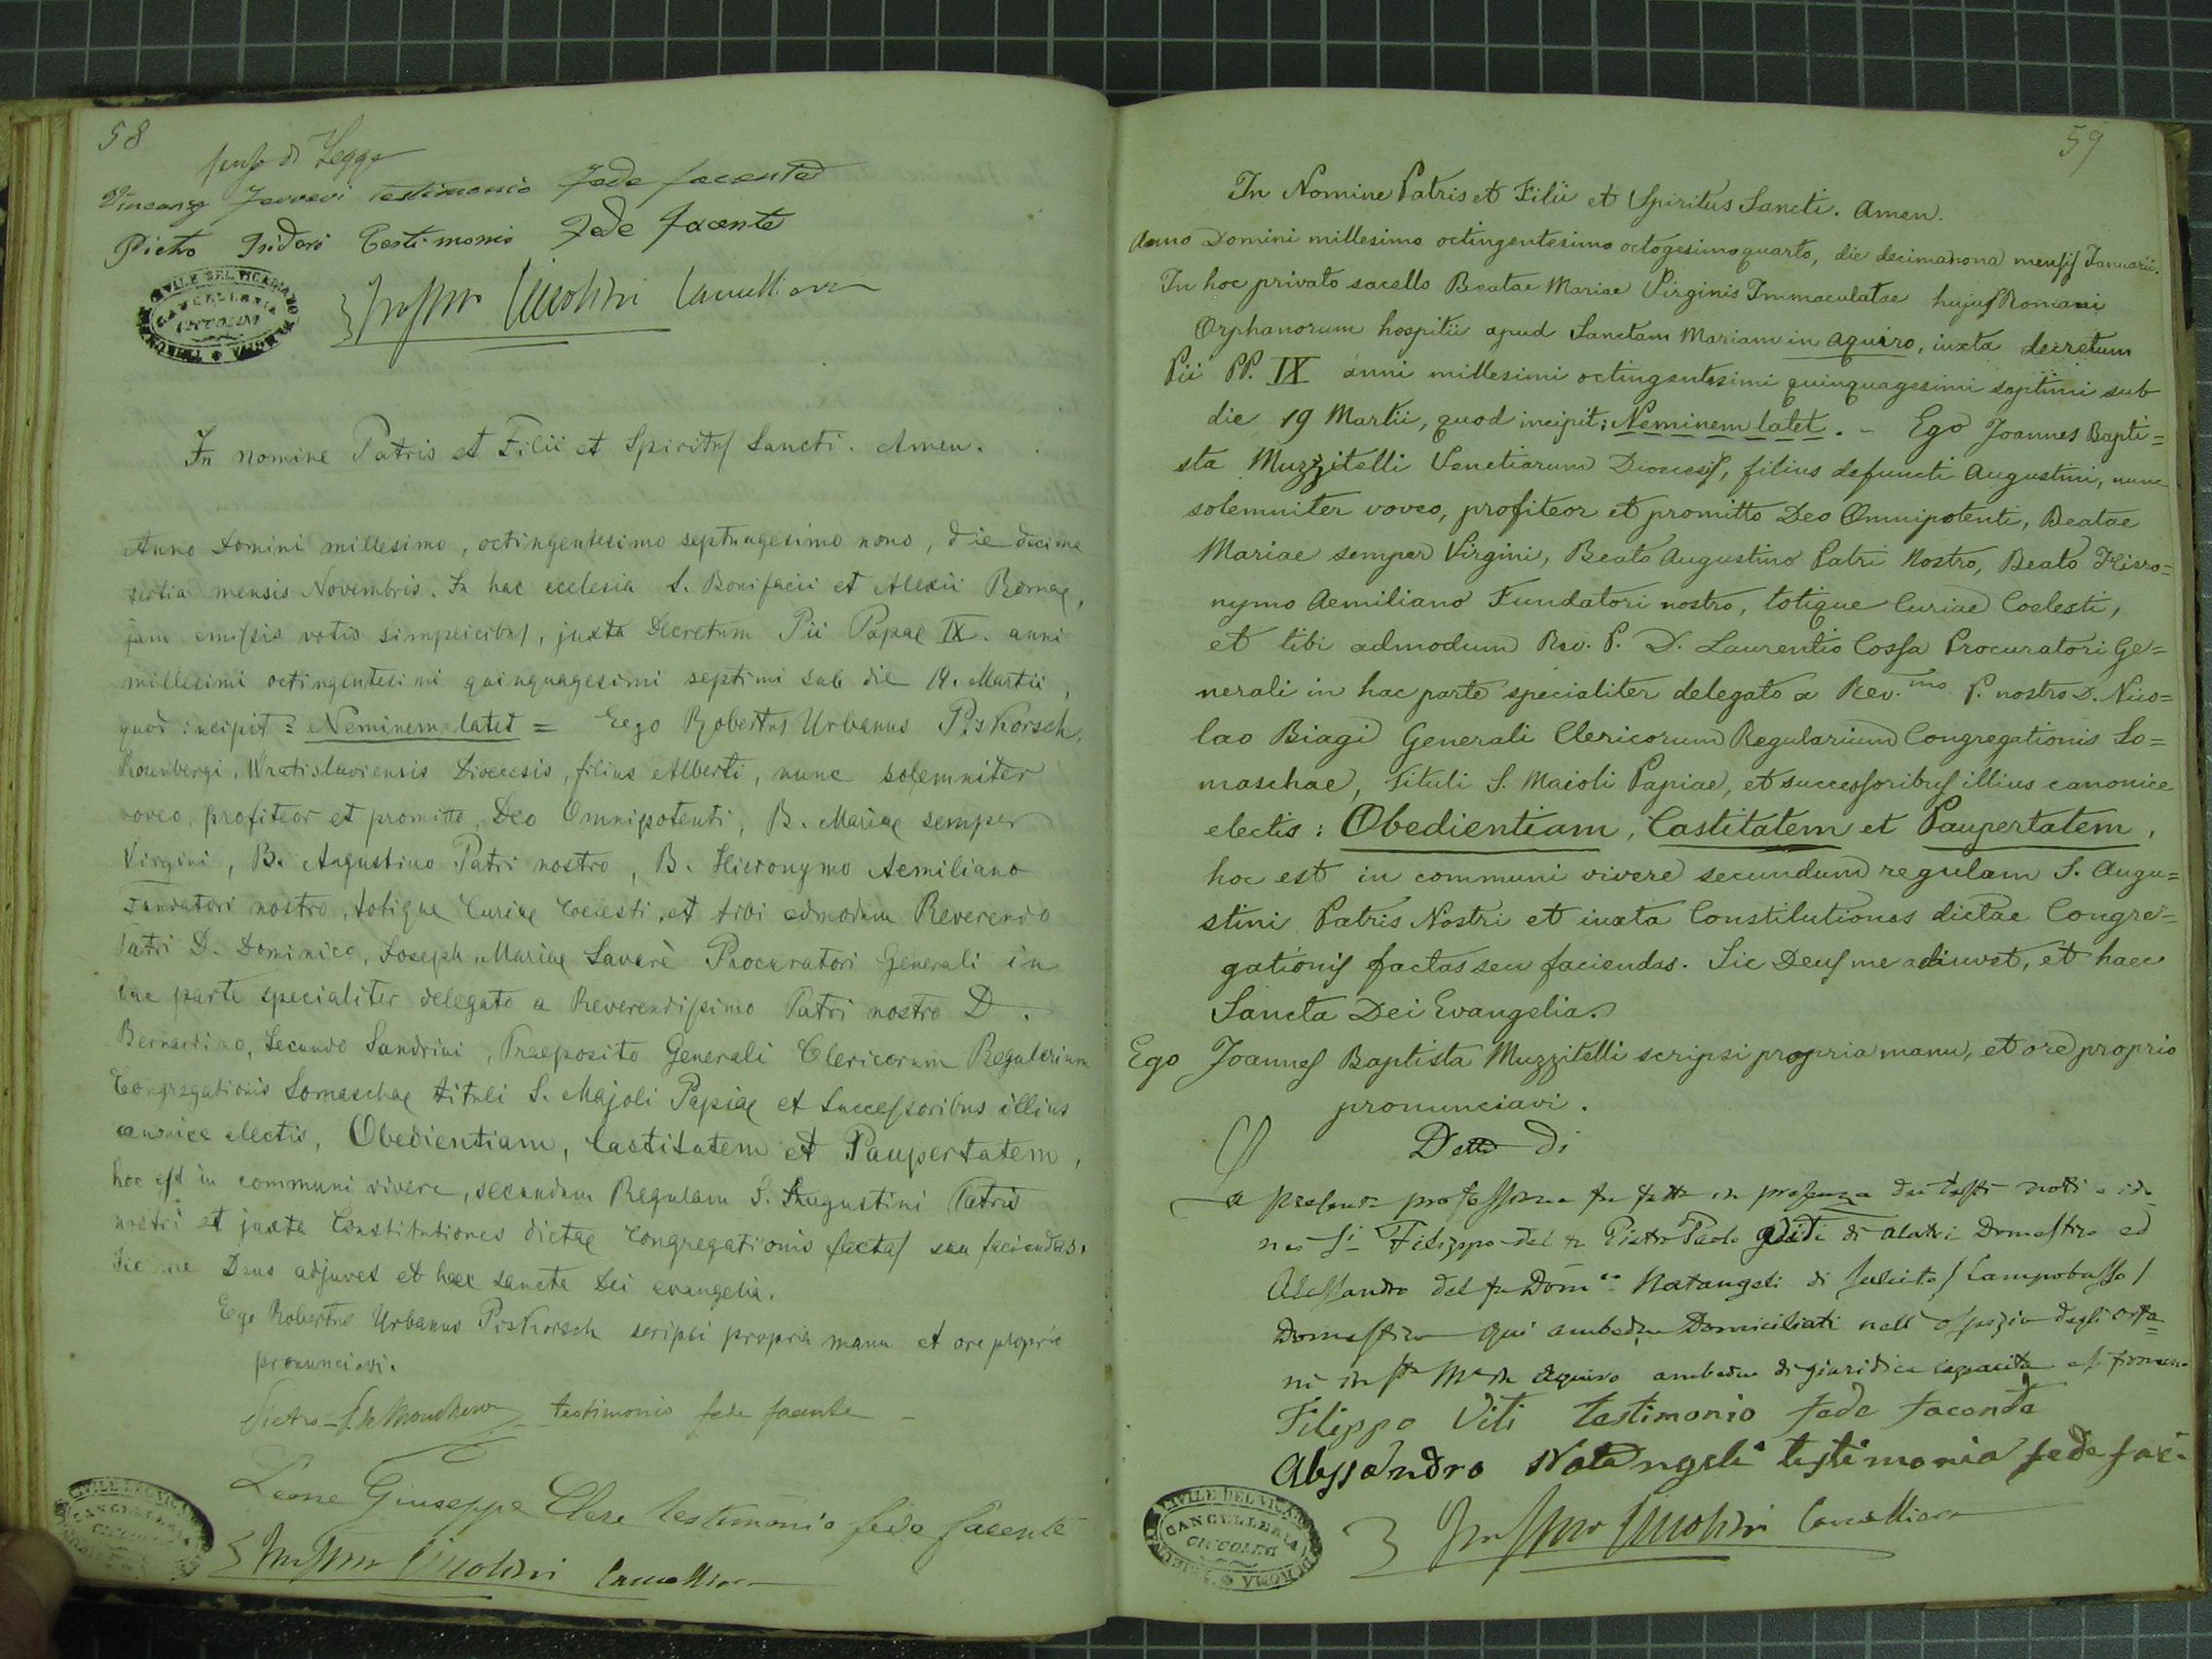 58
sensi di Legge
testimonio fede facente
Pietro Testimonio Fede facente
CIVILE DEL VICARIATO
CANCELLERIA
CICCOLINI
Ciccolini Cancelliere
In nomine Patris et Filii et Spiritus Sancti. Amen.
Anno Domini millesimo, octingentesimo septuagesimo nono, die decima
tertia mensis Novembris. In hac ecclesia S. Bonifacii et Alexii Romae,
jam emissis votis simplicibus, juxta Decretum Pii Papae IX. anni
millesimi octingentesimi quinquagesimi septimi sub die 19. Martii,
quod incipit = Neminem latet = Ego Robertus Urbanus Piskorsch,
Rosenbergi, Wratislaviensis Dioecesis, filius Alberti, nunc solemniter
voveo, profiteor et promitto, Deo Omnipotenti, B. Mariae semper
Virgini, B. Augustino Patri nostro, B. Hieronymo Aemiliano
Fundatori nostro, totique Curiae Coelesti, et tibi admodum Reverendo
Patri D. Dominico, Joseph, Mariae Savarè Procuratori Generali in
hac parte specialiter delegato a Reverendissimo Patri nostro D.
Bernardino, Secundo Sandrini, Praeposito Generali Clericorum Regularium
Congregationis Somaschae tituli S. Majoli Papiae et Successoribus illius
canonice electis, Obedientiam, Castitatem et Paupertatem,
hoc est in communi vivere, secundum Regulam S. Augustini Patris
nostri et juxta Constitutiones dictae Congregationis factas seu faciendas.
Sic me Deus adjuvet et haec sancta Dei evangelia.
Ego Robertus Urbanus Piskorsch scripsi propria manu et ore proprio
pronunciavi.
Pietro testimonio fede facente
Leone Giuseppe Clare testimonio fede facente
CIVILE DEL VIC
CANCELLERIA
Ciccolini Cancelliere
59
In Nomine Patris et Filii et Spiritus Sancti. Amen.
Anno Domini millesimo octingentesimo octogesimoquarto, die decimanona mensis Januarii.
In hoc privato sacello Beatae Mariae Virginis Immaculatae hujus Romani
Orphanorum hospitii apud Sanctam Mariam in Aquiro, iuxta decretum
Pii PP. IX anni millesimi octingentesimi quinquagesimi septimi sub
die 19 Martii, quod incipit: Neminem latet. - Ego Joannes Bapti=
sta Muzzitelli Venetiarum Dioecesis, filius defuncti Augustini, nunc
solemniter voveo, profiteor et promitto Deo Omnipotenti, Beatae
Mariae semper Virgini, Beato Augustino Patri Nostro, Beato Hiero=
nymo Aemiliano Fundatori nostro, totique Curiae Coelesti,
et tibi admodum Rev. P. D. Laurentio Cossa Procuratori Ge=
nerali in hac parte specialiter delegato a Rev.mo P. nostro D. Nico=
lao Biagi Generali Clericorum Regularium Congregationis So=
maschae, tituli S. Maioli Papiae, et successoribus illius canonice
electis: Obedientiam, Castitatem et Paupertatem,
hoc est in communi vivere secundum regulam S. Augu=
stini Patris Nostri et iuxta Constitutiones dictae Congre=
gationis factas seu faciendas. Sic Deus me adiuvet, et haec
Sancta Dei Evangelia.
Ego Joannes Baptista Muzzitelli scripsi propria manu, et ore proprio
pronunciavi.
Detto di
La presente professione fu fatta in presenza dei testi noti e ido
nei Filippo del fu Pietro Paolo Viti di Alatri Domestico ed
Alessandro del fu Dom.co Natangeli di (Campobasso)
Domestico qui ambedue Domiciliati nell'ospizio degli orfa=
ni in Sta Ma in Aquiro ambedue di giuridica capacità
Filippo Viti testimonio fede facente
Alessandro Natangeli testimonio fede face
CIVILE DEL VICARIATO DI ROMA
CANCELLERIA
CICCOLINI
Ciccolini Cancelliere